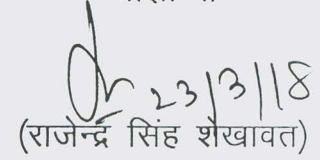 23/3/18
(राजेन्द्र सिंह शेखावत)